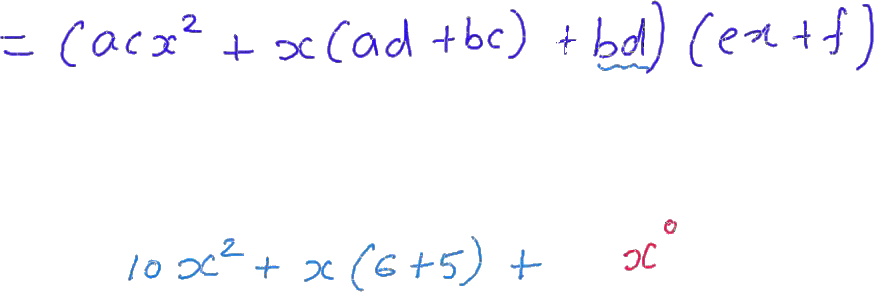 = (acx² + x(ad + bc) + bd) (ex + f)
10x² + x(6+5) + x⁰